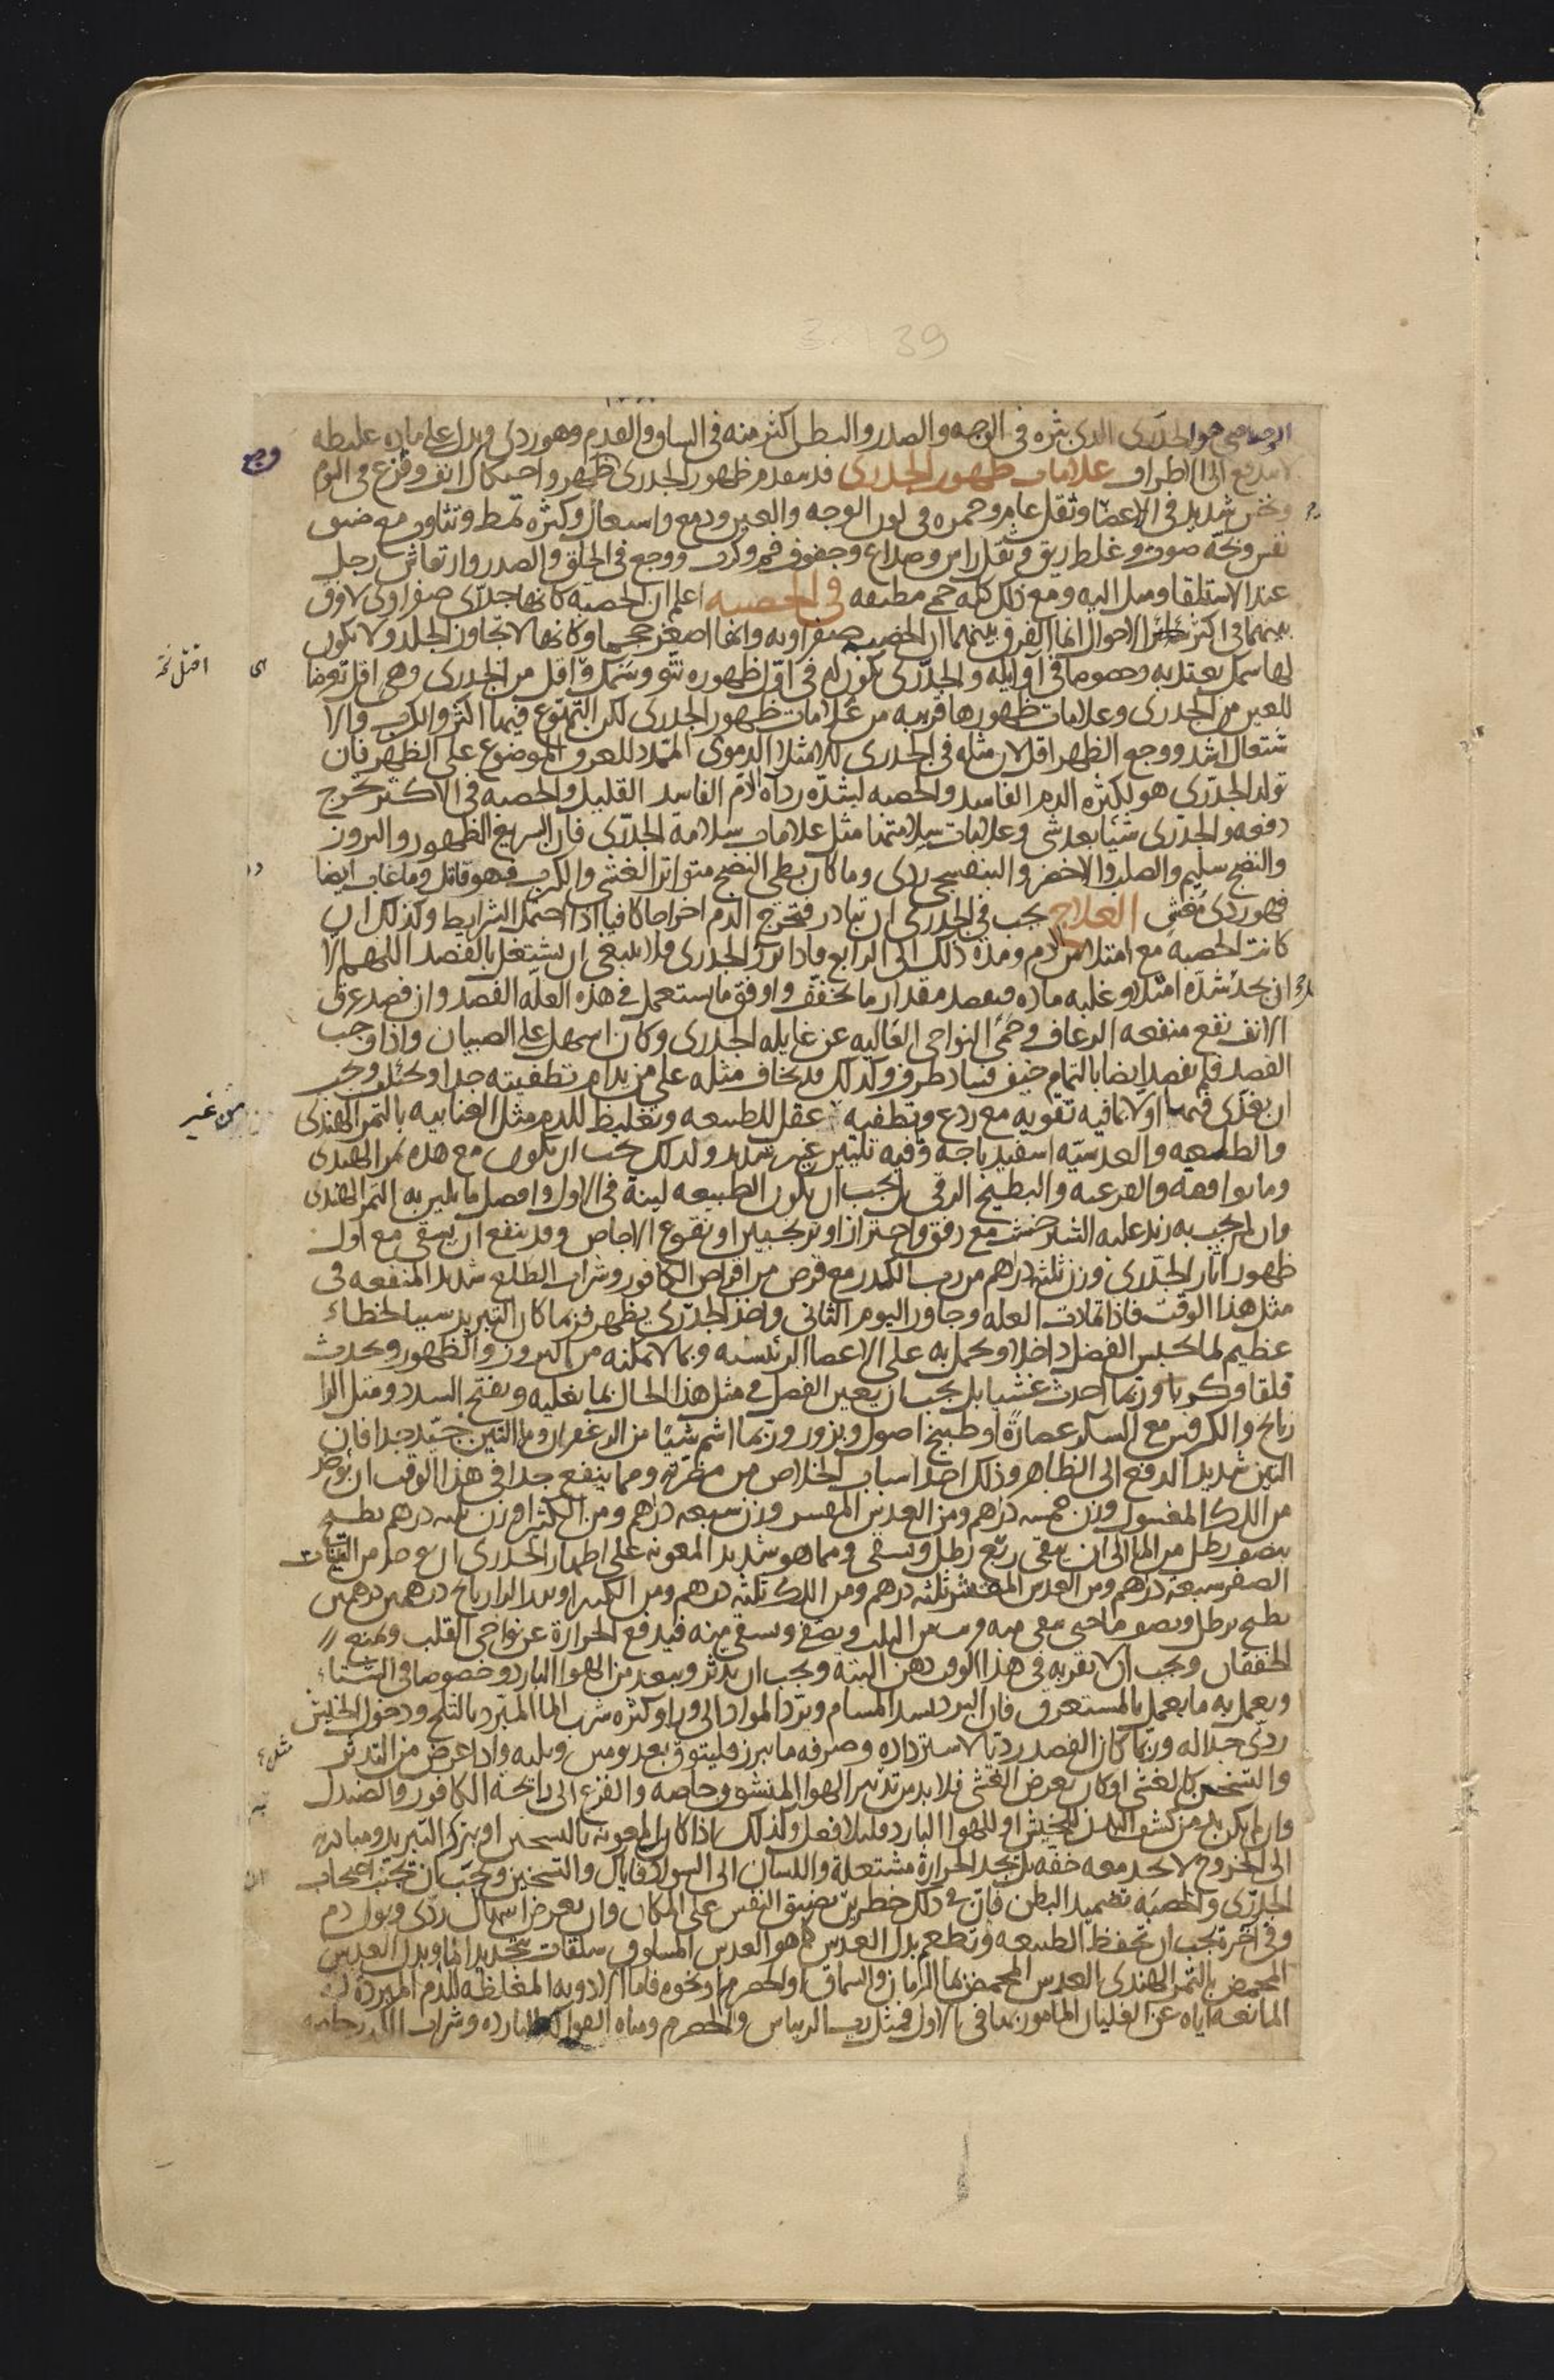 39
الرصاصي هو الجدرى الذى بثره فى الوجه والصدر والبطن اكثر منه فى الساق والقدم وهو ردى ويدل على ماده غليظه
لا تندفع الى الاطراف علامات ظهور الجدرى قد يتقدم ظهور الجدرى وجع ظهر واحتكاك انف وفزع فى النوم
ونخس شديد فى الاعضا وثقل عام وحمره فى لون الوجه والعين ودمع واشتعال وكثره تمط وتثاوب مع ضيق
نفس وبحه صوت وغلظ ريق وثقل راس وصداع وجفوف فم وكرب ووجع فى الحلق والصدر وارتعاش رجل
عند الاستلقا وميل اليه ومع ذلك كله حمى مطبقه فى الحصبه اعلم ان الحصبه كانها جدرى صفراوى لا فرق
بينهما فى اكثر الاحوال انما الفرق بينهما ان الحصبه صفراويه وانها اصغر حجما وكانها لا تجاوز الجلد ولا يكون
لها سمك يعتد به وخصوصا فى اوايله والجدرى يكون له فى اول ظهوره نتو وسمك واقل من الجدرى وهى اقل تعرضا
للعين من الجدرى وعلامات ظهورها قريبه من علامات ظهور الجدرى لكن التهوع فيها اكثر والكرب والا
شتعال اشد ووجع الظهر اقل لان مثله فى الجدرى للامتلا الدموى الممدد للعرق الموضوع على الظهر فان
تولد الجدرى هو لكثره الدم الفاسد والحصبه لشده رداه الدم الفاسد القليل والحصبه فى الاكثر تخرج
دفعه والجدرى شيئا بعد شى وعلامات سلامتها مثل علامات سلامة الجدرى فان السريع الظهور والبروز
والنضج سليم والصلب والاخضر والبنفسجى ردى وما كان بطى النضج متواتر الغشى والكرب فهو قاتل وما غاب ايضا
فهو ردى مغش العلاج يجب فى الجدرى ان تبادر فتخرج الدم اخراجا كافيا اذا احتمل الشرايط وكذلك ان
كانت الحصبه مع امتلا من دم ومدة ذلك الى الرابع فاذا برز الجدرى فلا ينبغى ان يشتغل بالفصد اللهم الا
ان يجد شدة امتلا وغلبه ماده فيفصد مقدار ما يخفف واوفق ما يستعمل فى هذه العله الفصد وان فصد عرق
الانف نفع منفعه الرعاف وحمى النواحى العاليه عن غايله الجدرى وكان اسهل على الصبيان واذا وجب
الفصد فلم يفصد ايضا بالتمام خيف فساد طرف وكذلك قد يخاف مثله على من يدام تطفيته جدا ويجب
ان يغذى فيهما اولا بما فيه تقويه مع ردع وتطفيه عقل للطبيعه وتغليظ للدم مثل العنابيه بالتمر الهندى
والطلعيه والعدسيه اسفيدباجه وفيه تليين غير شديد ولذلك يجب ان يكون مع هذه تمر الهندى
وما يوافقه والقرعيه والبطيخ الرقى ويجب ان يكون الطبيعه لينة فى الاول وافضل ما يلين به التمر الهندى
وان لم يجب به زيد عليه الشيرخشت مع رفق واحتراز او ترنجبين او نقوع الاجاص وقد ينفع ان يسقى مع اول
ظهور اثار الجدرى وزن ثلثه دراهم من رب الكدر مع قرص من اقراص الكافور وشراب الطلع شديد المنفعه فى
مثل هذا الوقت فاذا تمادت العله وجاوز اليوم الثانى واخذ الجدرى يظهر فربما كان التبريد سببا لخطاء
عظيم لما يحبس الفضل داخلا ويحمل به على الاعضا الرئيسه وبما لا يمكنه من البروز والظهور ويحدث
قلقا وكربا وربما احدث غشيا بل يجب ان يعين الفضل فى مثل هذا الحال بما يغليه ويفتح السدد مثل الرا
زيانج والكرفس مع السكر عصارة او طبيخ اصول وبزور وربما اشم شيئا من الزعفران وما التين جيد جدا فان
التين شديد الدفع الى الظاهر وذلك احد اسباب الخلاص من مضرته ومما ينفع جدا فى هذا الوقت ان يوخذ
من اللك المغسول وزن خمسه دراهم ومن العدس المقشر وزن سبعه دراهم ومن الكثيرا وزن ثلثه درهم يطبخ
بنصف رطل من الما الى ان يبقى ربع رطل ويسقى ومما هو شديد المعونه على اظهار الجدرى ان يوخذ من التينات
الصفر سبعة درهم ومن العدس المقشر ثلثه درهم ومن اللك ثلثه درهم ومن الكثيرا وبزر الرازيانج درهمين درهمين
يطبخ برطل ونصف ما حتى يبقى منه قريب من الثلث ويصفى ويسقى منه فيدفع الحرارة عن نواحى القلب ويمنع
الخفقان ويجب ان لا تقربه فى هذا الوقت دهن البتة ويجب ان يدثر ويبعد من الهوا البارد وخصوصا فى الشتاء
ويعمل به ما يعمل بالمستعرق فان البرد يسد المسام ويرد المواد الى ورا وكثره شرب الما المبرد بالثلج ودخول الخيش
ردى جدا له وربما كان الفصد رديا لاسترداده وصرفه ما يبرز فليتوق بعد يومين وثلثه واذا عرض من التدثر
والتسخين كالغشى او كان يعرض الغشى فلا بد من تدبير الهوا المنشوق خاصه والفزع الى رايحة الكافور والصندل
وان لم يكن بد من كشف البدن للخيش او للهوا البارد قليلا فعل وكذلك اذا كان المعونه بالتسخين او بترك التبريد ومبادره
الى الخروج لا يجد معه خفه بل يجد الحرارة مشتعلة واللسان الى السواد فاياك والتسخين ويجب ان تجنب اصحاب
الجدرى والحصبه تضميد البطن فان فى ذلك خطرين بضيق النفس على المكان وان يعرض اسهال ردى وبول دم
وفى اخره يجب ان تحفظ الطبيعه وتطعم بدل العدس كما هو العدس المسلوق سلقات بتجديد الما وبدل العدس
المحمض بالتمر الهندى العدس المحمض بما الرمان والسماق والحصرم ونحوه فاما الادويه المغلظه للدم المبرده له
المانعه اياه عن الغليان المامور بها فى الاول فمثل رب الريباس والحصرم ومياه الفواكه البارده وشراب الكدر خاصه
وجع
اى
من غير